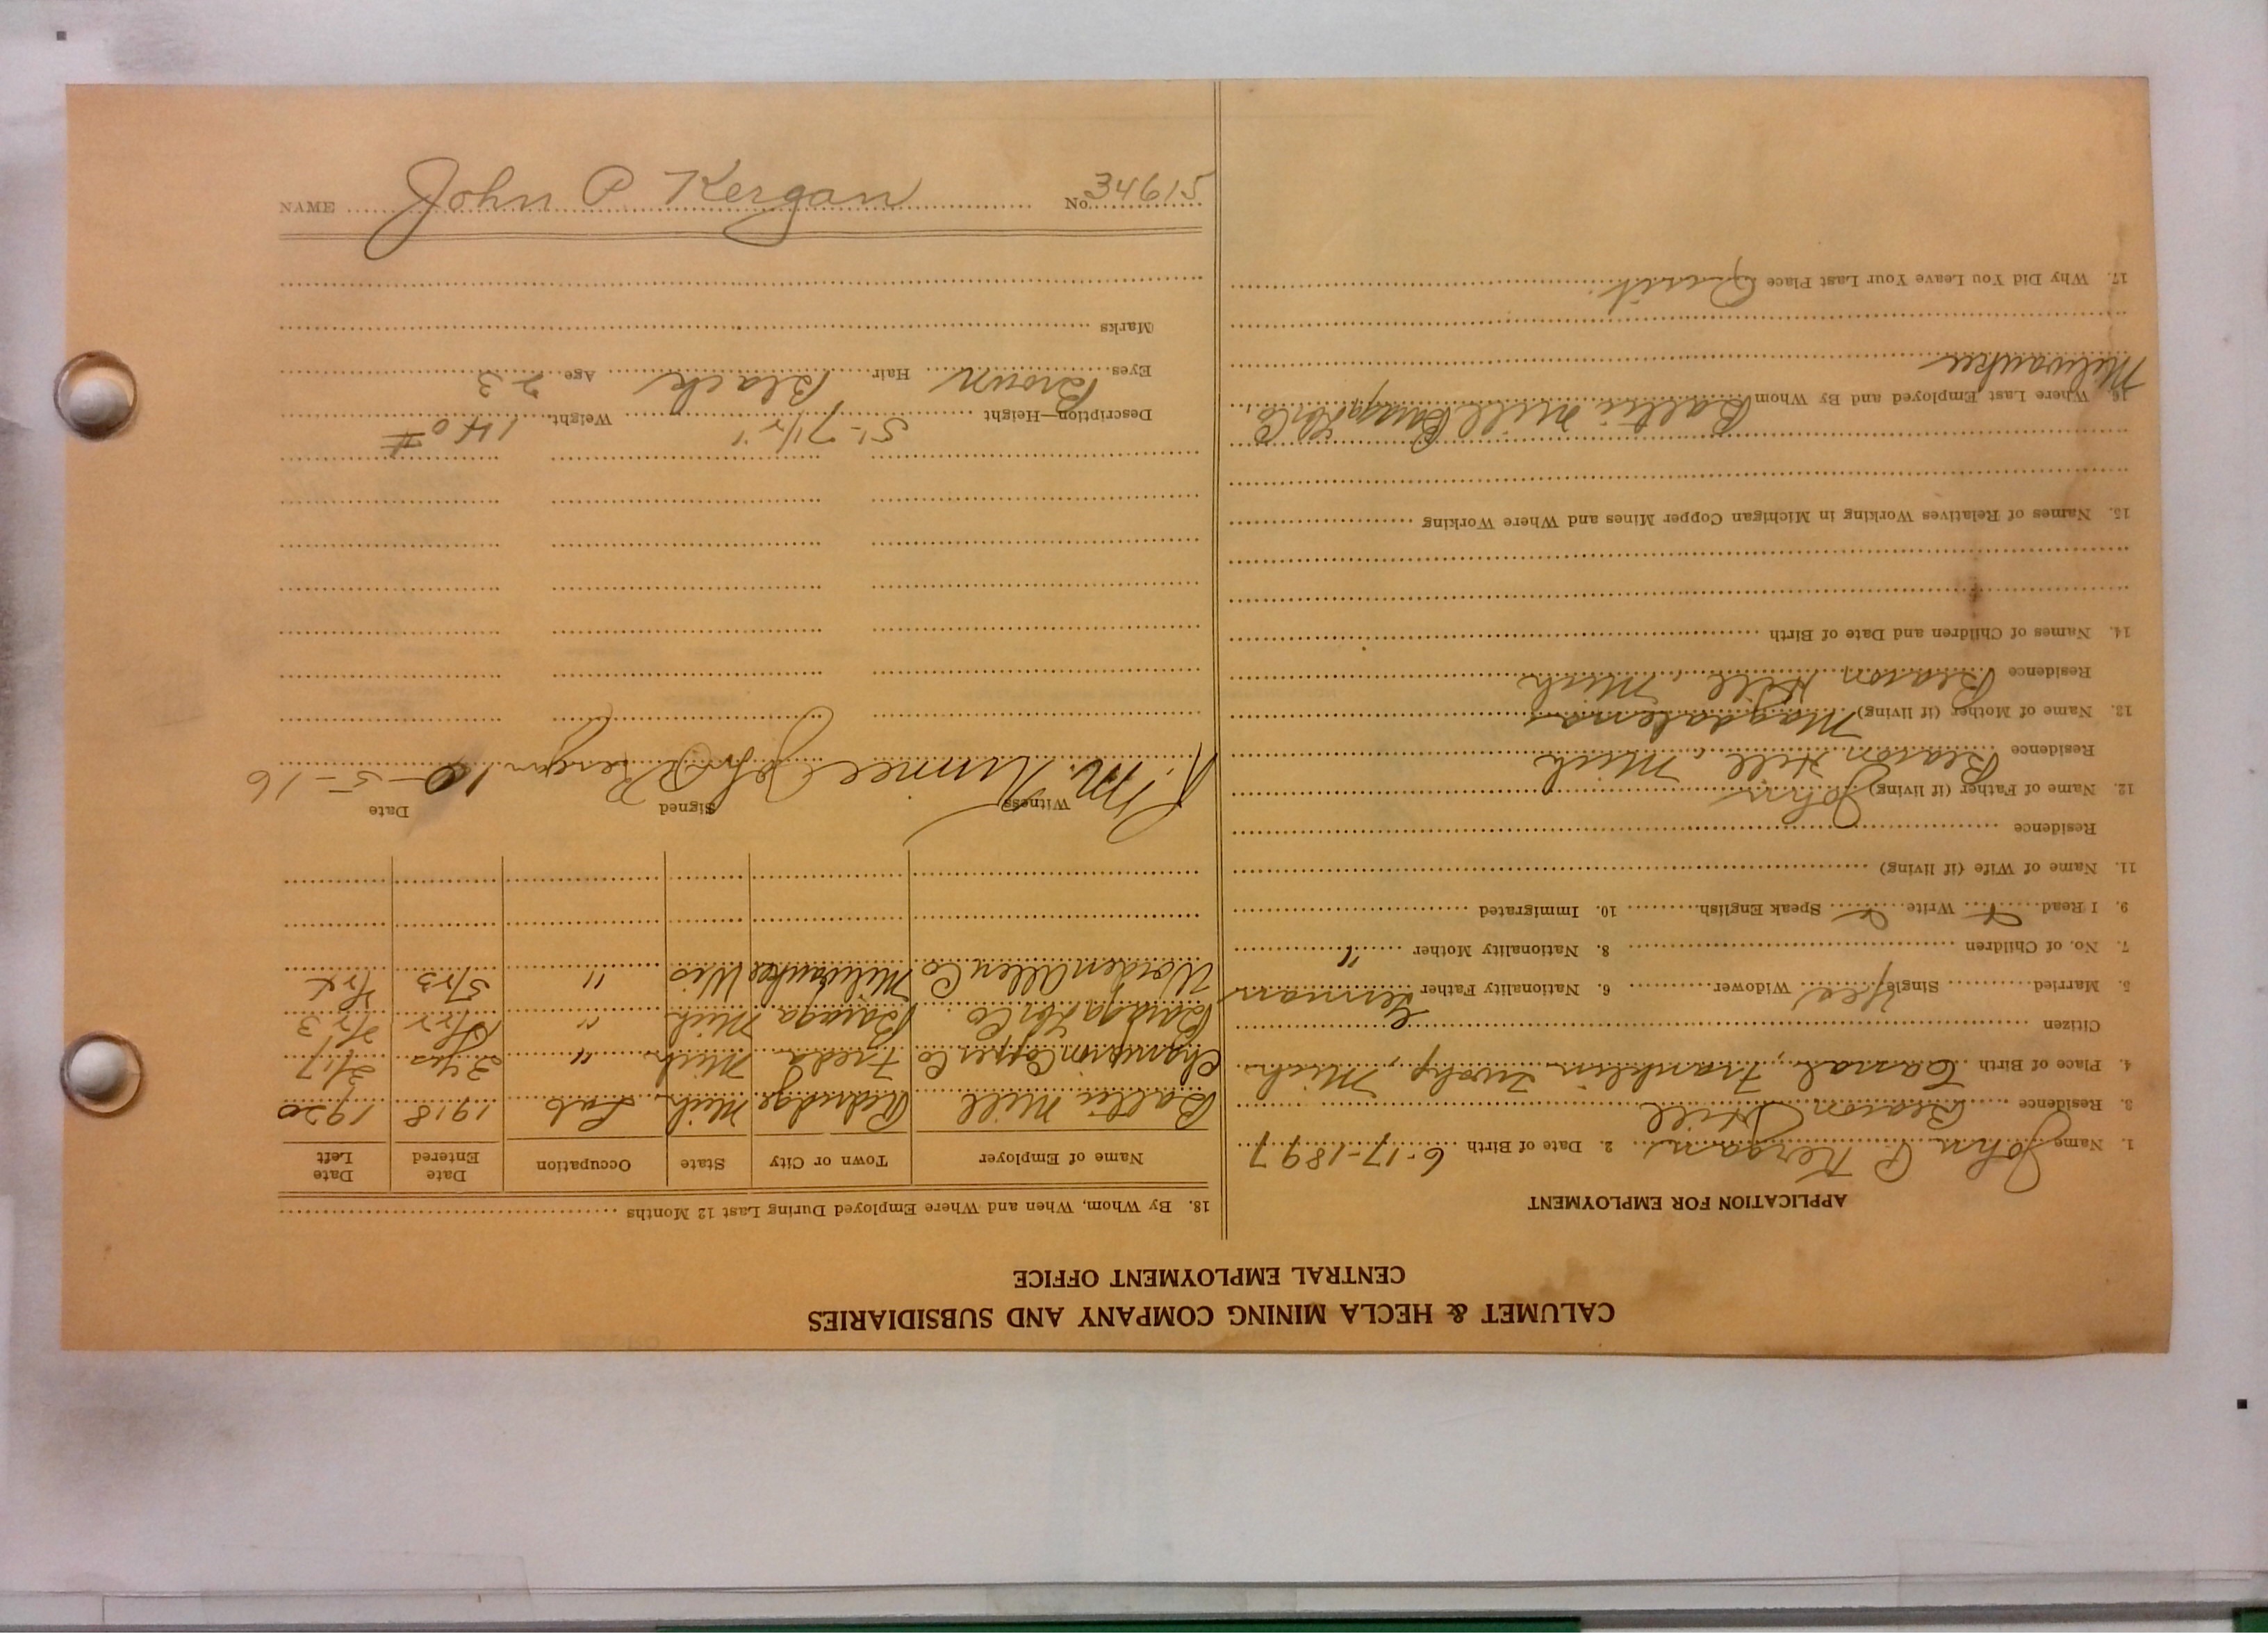 CALUMET & HECLA MINING COMPANY AND SUBSIDIARIES
CENTRAL EMPLOYMENT OFFICE
APPLICATION FOR EMPLOYMENT
1. Name John P Kergan 2. Date of Birth 6-17-1897
3. Residence Beacon Hill
4. Place of Birth Canal, Franklin Twshp, Mich
Citizen
5. Married Single Yes Widower 6. Nationality Father German
7. No. of Children 8. Nationality Mother "
9. I Read Write Speak English 10. Immigrated
11. Name of Wife (if living)
Residence
12. Name of Father (if living) John
Residence Beacon Hill, Mich
13. Name of Mother (if living) Magdalena
Residence Beacon Hill, Mich
14. Names of Children and Date of Birth
15. Names of Relatives Working in Michigan Copper Mines and Where Working
16. Where Last Employed and By Whom Baltic Mill Baraga Lbr Co,
Milwaukee
17. Why Did You Leave Your Last Place Quit
18. By Whom, When and Where Employed During Last 12 Months
Name of Employer Town or City State Occupation Date Entered Date Left
Baltic Mill Redridge Mich Lab 1918 1920
Champion Copper Co Freda Mich " 2 yrs 3/17
Baraga Lbr Co Baraga Mich "
Worden Allen Co Milwaukee Wis " 5/23
Witness Signed Date
John P Kergan 10-5-16
Description—Height 5'-7 1/2" Weight 140 #
Eyes Brown Hair Black Age 23
Marks
NAME John P Kergan No. 34615